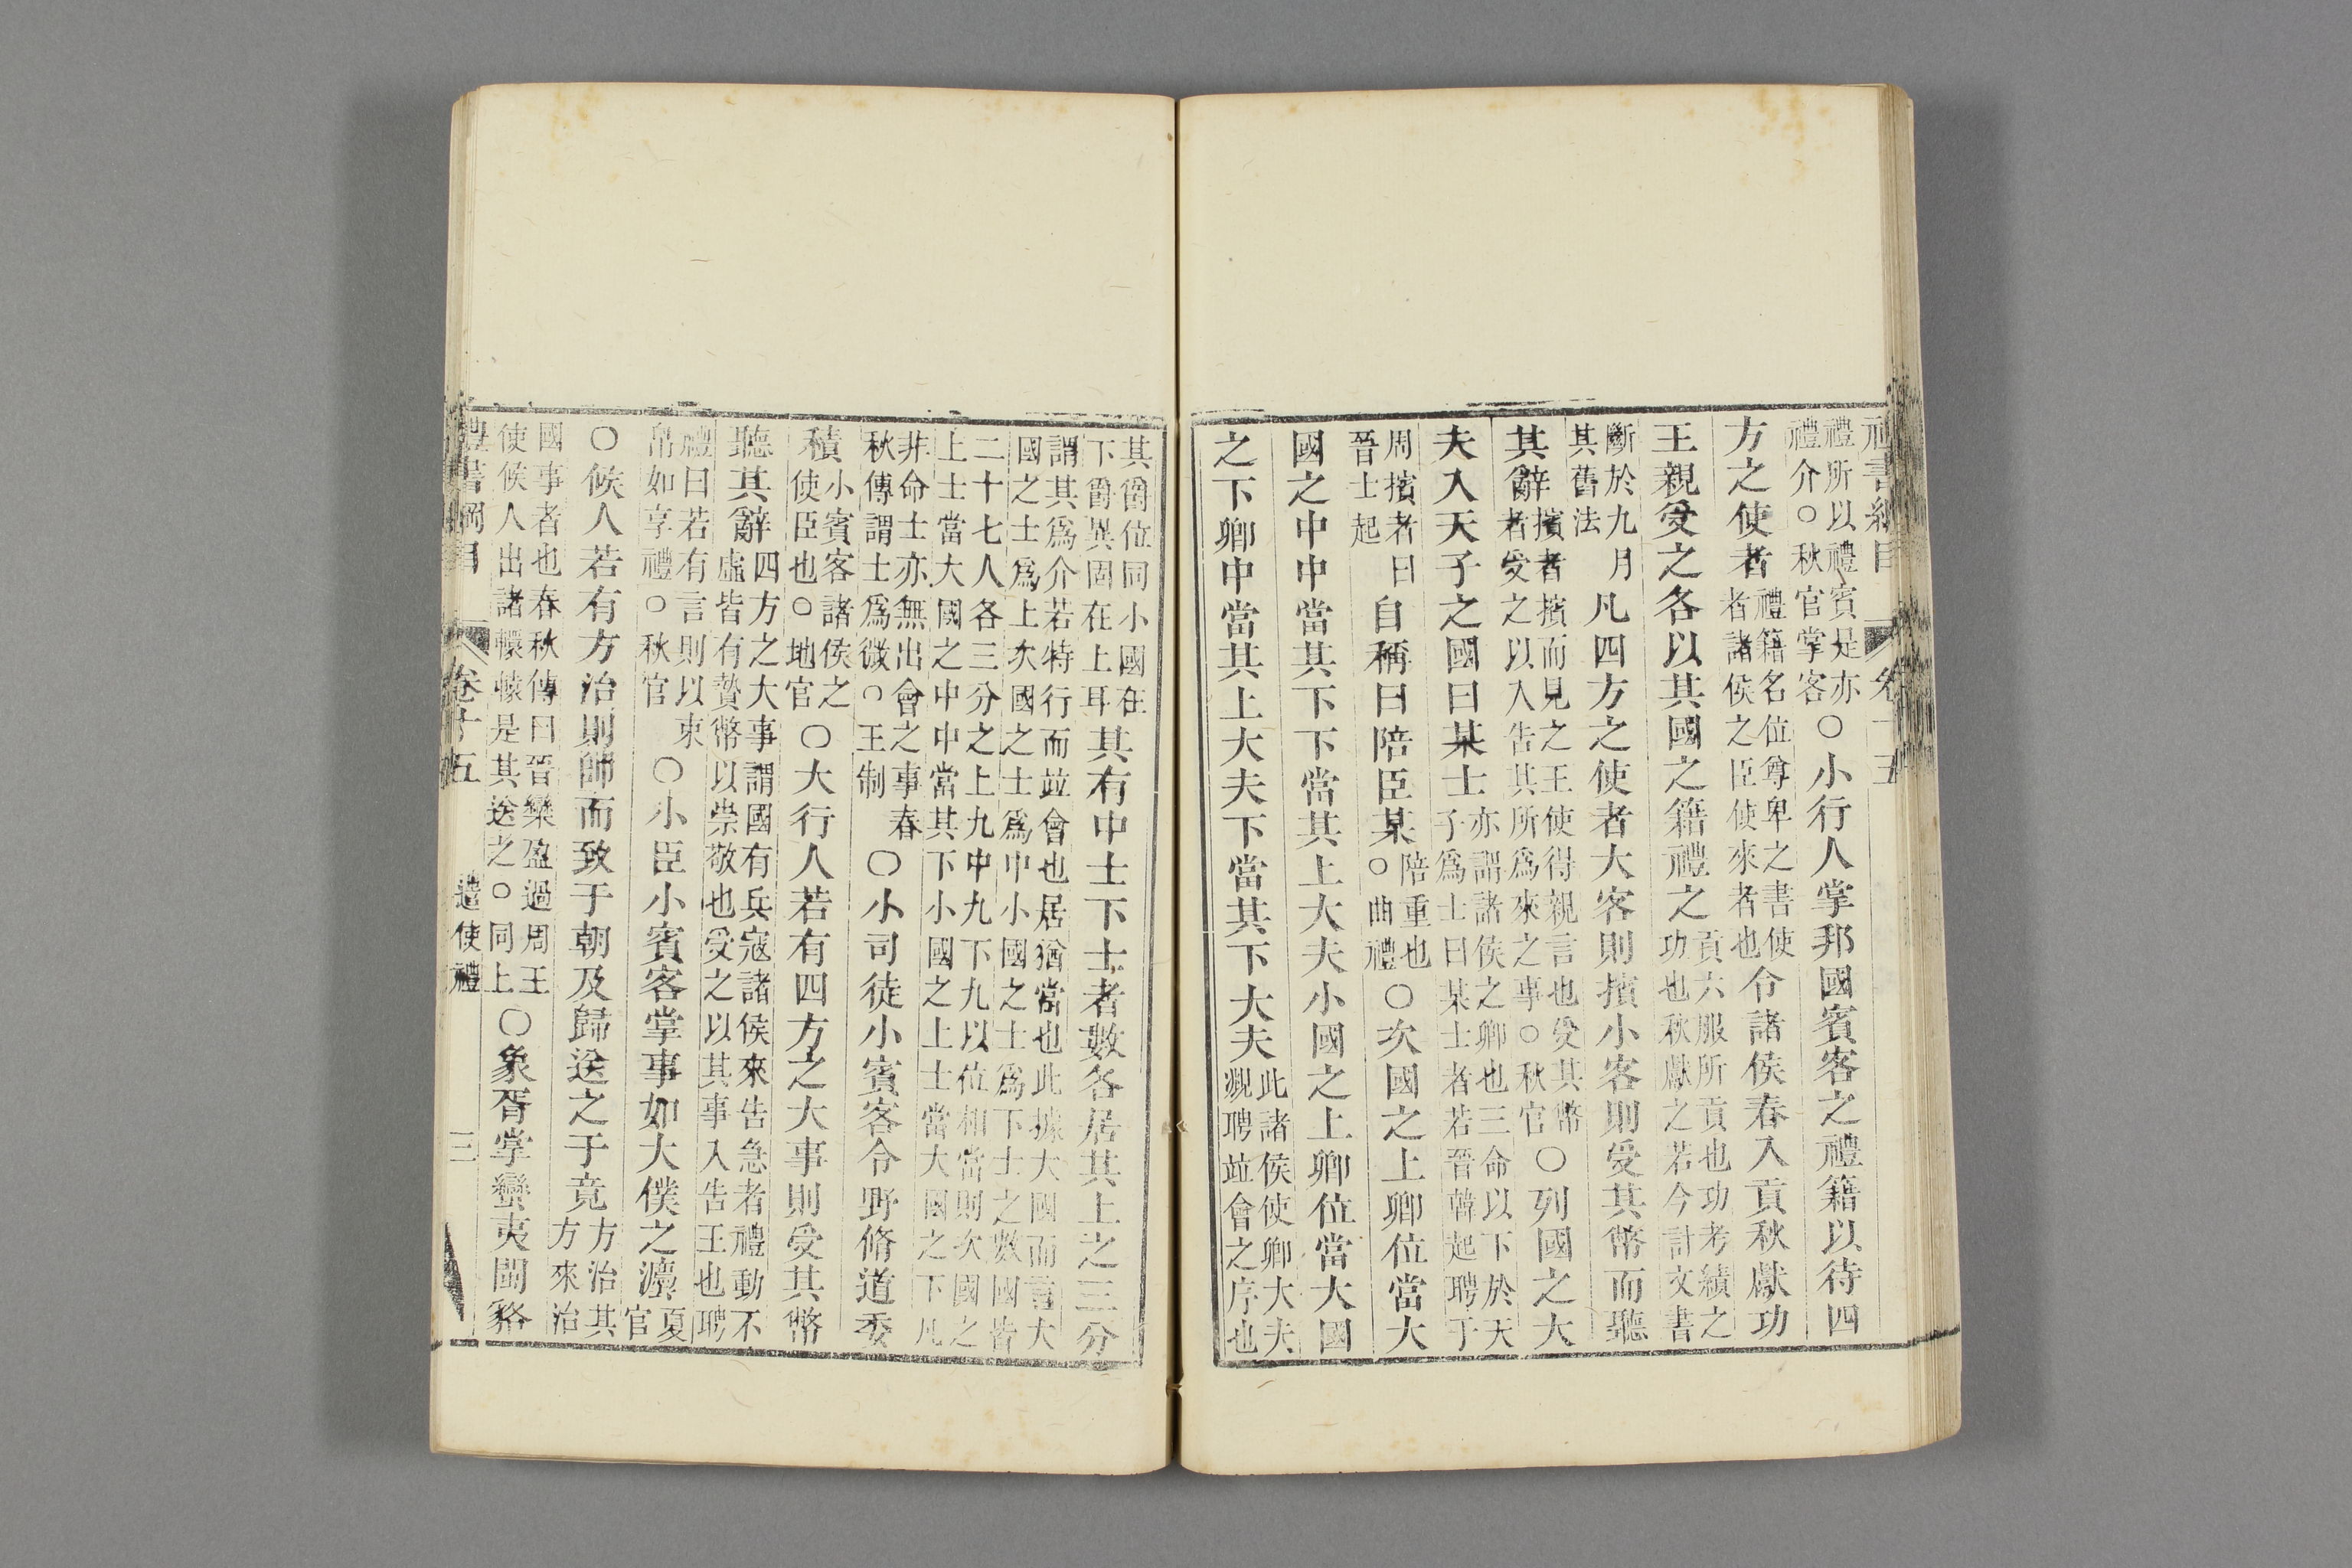 禮書綱目 卷十五
禮所以禮賓是亦禮介○秋官掌客○小行人掌邦國賓客之禮籍以待四
方之使者禮籍名位尊卑之書使者諸侯之臣使來者也令諸侯春入貢秋獻功
王親受之各以其國之籍禮之貢六服所貢也功考績之功也秋獻之若今計文書
斷於九月其舊法凡四方之使者大客則擯小客則受其幣而聽
其辭擯者擯而見之王使得親言也受其幣者受之以入告其所爲來之事○秋官○列國之大
夫入天子之國曰某士亦謂諸侯之卿也三命以下於天子爲士曰某士者若晉韓起聘于
周擯者曰晉士起自稱曰陪臣某陪重也○曲禮○次國之上卿位當大
國之中中當其下下當其上大夫小國之上卿位當大國
之下卿中當其上大夫下當其下大夫此諸侯使卿大夫覜聘並會之序也
其爵位同小國在下爵異固在上耳其有中士下士者數各居其上之三分
謂其爲介若特行而並會也居猶當也此據大國而言大國之士爲上次國之士爲中小國之士爲下士之數國皆
二十七人各三分之上九中九下九以位相當則次國之上士當大國之中中當其下小國之上士當大國之下凡
非命士亦無出會之事春秋傳謂士爲微○王制○小司徒小賓客令野脩道委
積小賓客諸侯之使臣也○地官○大行人若有四方之大事則受其幣
聽其辭四方之大事謂國有兵寇諸侯來告急者禮動不虛皆有贄幣以崇敬也受之以其事入告王也聘
禮曰若有言則以束帛如享禮○秋官○小臣小賓客掌事如大僕之灋夏官
○候人若有方治則帥而致于朝及歸送之于竟方治其方來治
國事者也春秋傳曰晉欒盈過周王使候人出諸轘轅是其送之○同上○象胥掌蠻夷閩貉
禮書綱目 卷十五 遣使禮 三